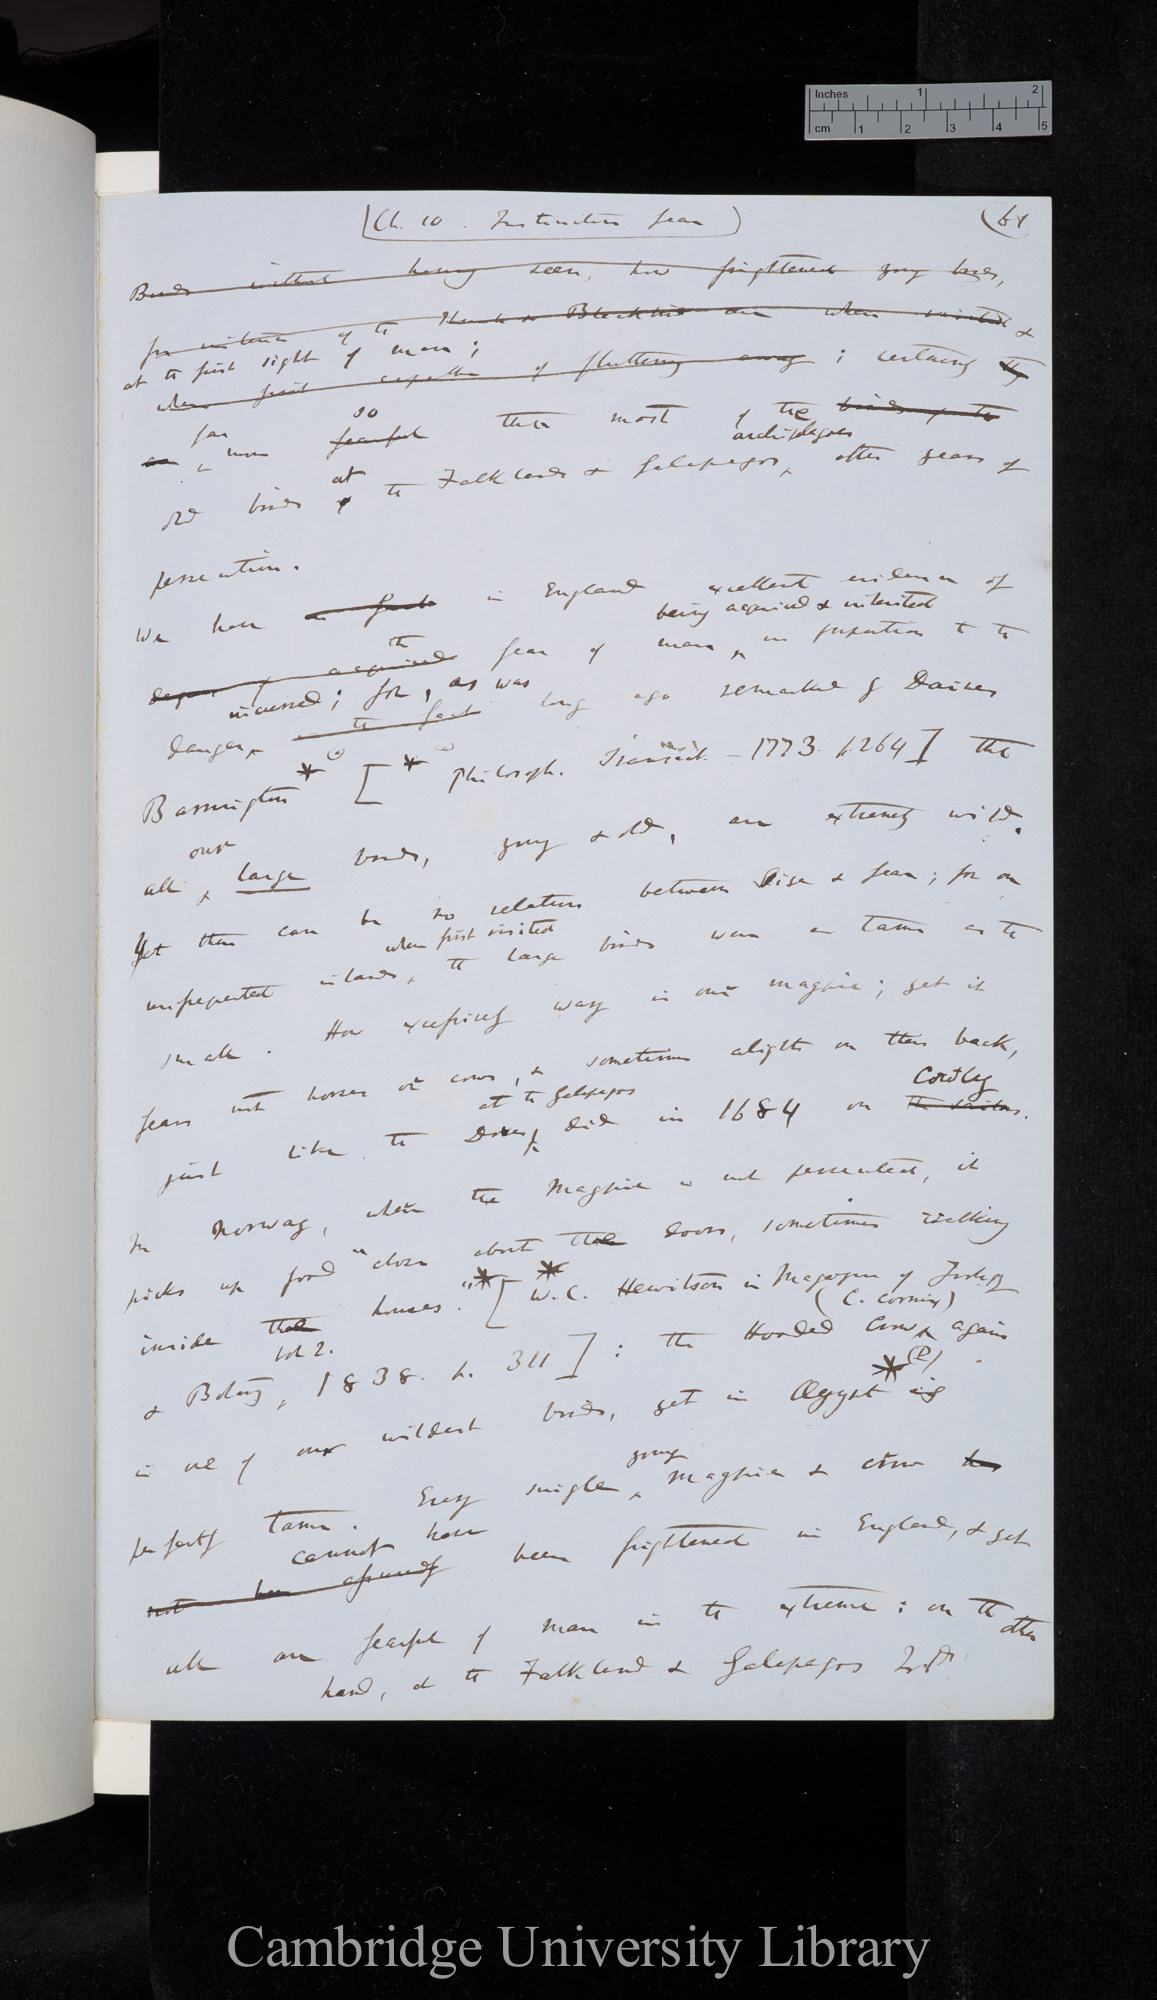 Inches 1 2
cm 1 2 3 4 5
(Ch. 10. Instinctive fear)
(61
Birds without having seen, how frightened young birds,
for instance of the Thrush or Blackbird are when visited &
at the first sight of man;
when first capable of fluttering away; certainly they
so
are far more fearful than most of the birds of the
archipelagoes
old birds at the Falklands & Galapagos, after years of
persecution.
We have in England excellent evidence of
being acquired & inherited
degree of acquired the fear of man, in proportion to the
incurred; for, as was
danger, the fact long ago remarked by Daines
Barrington * [* Philosoph. Transact. – 1773. p. 264] that
our
all large birds, young & old, are extremely wild.
Yet there can be no relation between size & fear; for on
when first visited
unfrequented islands, the large birds were as tame as the
small. How excessively wary is our magpie; yet it
fears not horses or cows, & sometimes alights on their back,
at the Galapagos
Cowley
just like the Doves did in 1684 on the sailors.
In Norway, where the Magpie is not persecuted, it
picks up food "close about the doors, sometimes walking
inside the houses." * [* W. C. Hewitson in Magazine of Zoology
vol 2.
(C. cornix)
& Botany, 1838. p. 311]: the Hooded Crow again
is one of our wildest birds, yet in Egypt * is
young
perfectly tame. Every single Magpie & crow has
cannot have
not been been frightened in England, & yet
all are fearful of man in the extreme: on the other
hand, at the Falkland & Galapagos Isds
Cambridge University Library